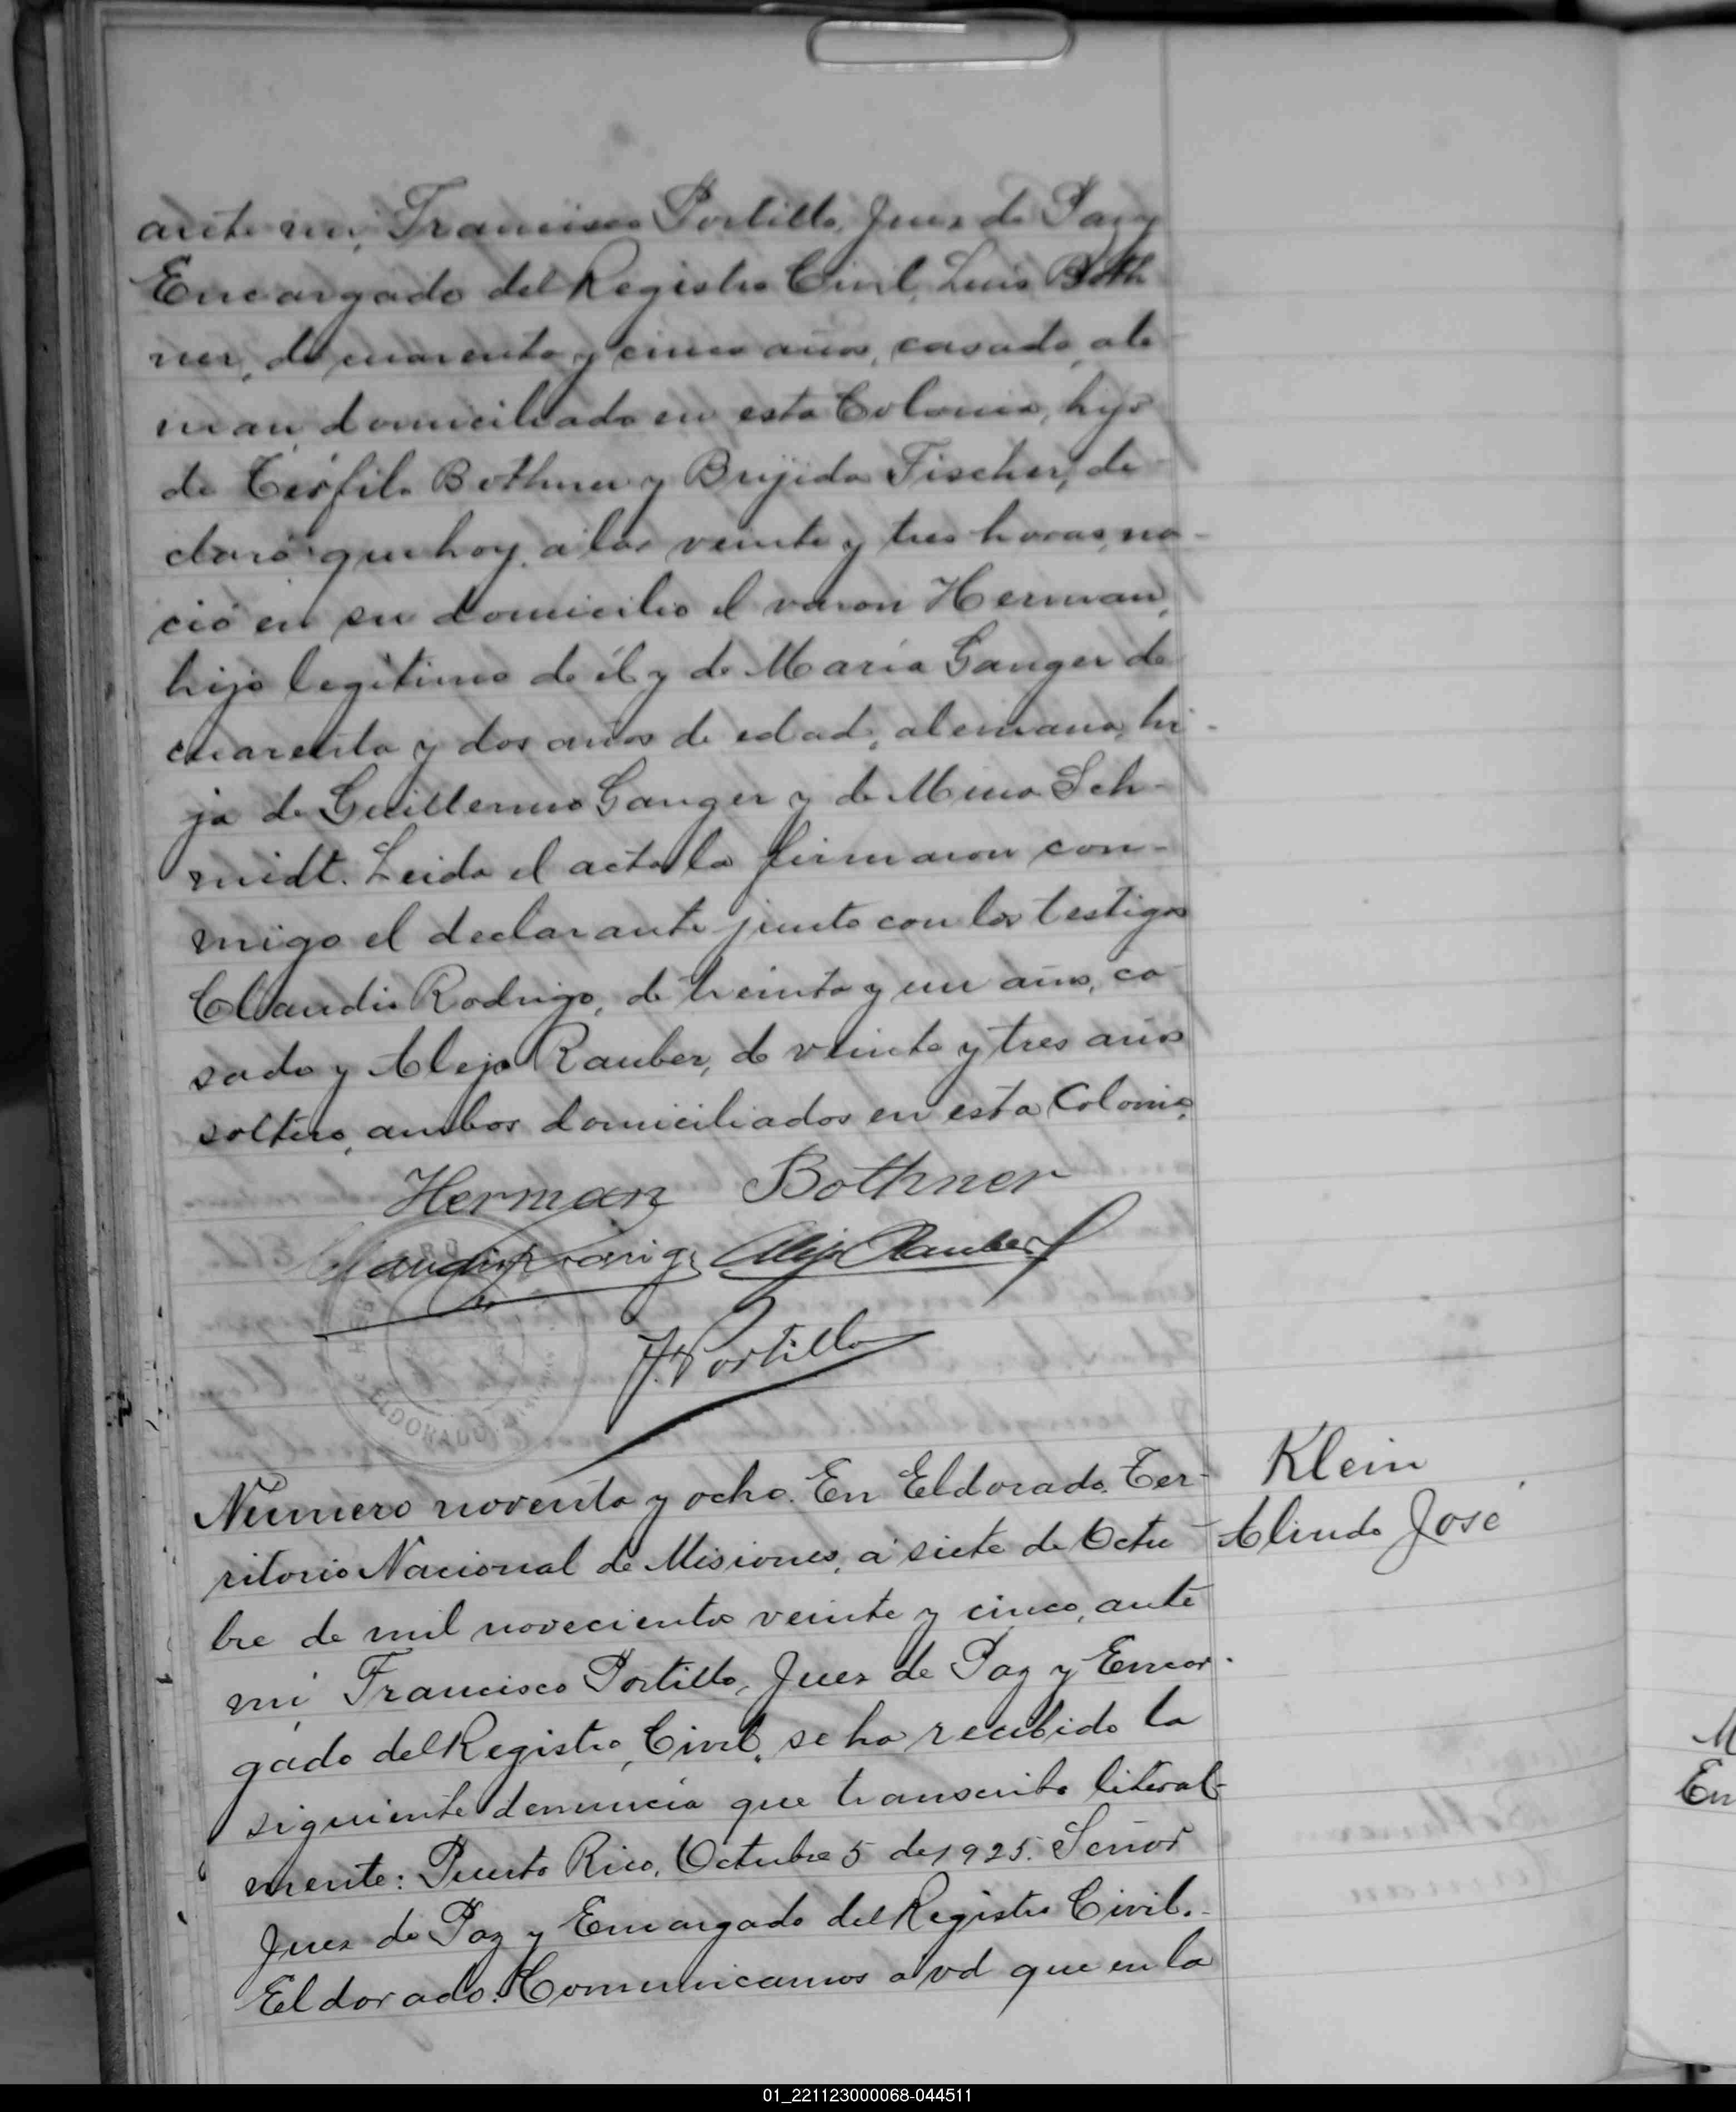 ante mi, Francisco Portillo, Juez de Paz y
Encargado del Registro Civil, Luis Both
ner, de cuarenta y cinco años, casado, ale
man, domiciliado en esta Colonia, hijo
de Teófilo Bothner y Brijida Fischer, de-
claró que hoy, a las veinte y tres horas, na-
ció en su domicilio el varon Herman,
hijo legítimo de él y de María Ganger de
cuarenta y dos años de edad, alemana, hi-
ja de Guillermo Ganger y de Mina Sch-
midt. Leida el acta la firmaron con-
migo el declarante junto con los testigos
Claudio Rodrigo, de treinta y un años, ca-
sado y Alejo Rauber, de veinte y tres años
soltero, ambos domiciliados en esta Colonia.
Herman Bothner
Alejo Rauber
F. Portillo
ELDORADO
Numero noventa y ocho. En Eldorado, Ter-
ritorio Nacional de Misiones, á siete de Octu-
bre de mil novecientos veinte y cinco, ante
mi, Francisco Portillo, Juez de Paz y Encar-
gado del Registro Civil, se ha recibido la
siguiente denuncia que transcribo literal-
mente: Puerto Rico, Octubre 5 de 1925. Señor
Juez de Paz y Encargado del Registro Civil.-
Eldorado. Comunicamos a vd que en la
Klein
Alindo José
M
En
01_221123000068-044511